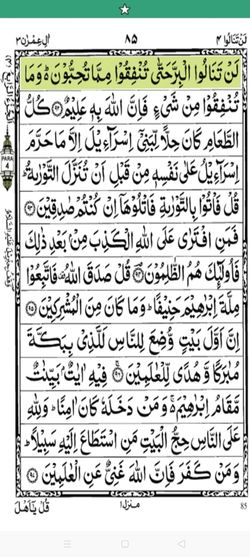 لن تنالوا ۴
۸۵
اٰل عمرٰن ۳
لَنْ تَنَالُوا الْبِرَّ حَتّٰى تُنْفِقُوْا مِمَّا تُحِبُّوْنَ ؕ وَمَا
تُنْفِقُوْا مِنْ شَيْءٍ فَاِنَّ اللّٰهَ بِهٖ عَلِيْمٌ ﴿۹۲﴾ كُلُّ
الطَّعَامِ كَانَ حِلًّا لِّبَنِيْۤ اِسْرَآءِيْلَ اِلَّا مَا حَرَّمَ
اِسْرَآءِيْلُ عَلٰى نَفْسِهٖ مِنْ قَبْلِ اَنْ تُنَزَّلَ التَّوْرٰىةُ ؕ
قُلْ فَاْتُوْا بِالتَّوْرٰىةِ فَاتْلُوْهَاۤ اِنْ كُنْتُمْ صٰدِقِيْنَ ﴿۹۳﴾
فَمَنِ افْتَرٰى عَلَى اللّٰهِ الْكَذِبَ مِنْۢ بَعْدِ ذٰلِكَ
فَاُولٰٓئِكَ هُمُ الظّٰلِمُوْنَ ﴿۹۴﴾ قُلْ صَدَقَ اللّٰهُ ۫ فَاتَّبِعُوْا
مِلَّةَ اِبْرٰهِيْمَ حَنِيْفًا ؕ وَمَا كَانَ مِنَ الْمُشْرِكِيْنَ ﴿۹۵﴾
اِنَّ اَوَّلَ بَيْتٍ وُّضِعَ لِلنَّاسِ لَلَّذِيْ بِبَكَّةَ
مُبٰرَكًا وَّهُدًى لِّلْعٰلَمِيْنَ ﴿۹۶﴾ فِيْهِ اٰيٰتٌۢ بَيِّنٰتٌ
مَّقَامُ اِبْرٰهِيْمَ ۚ وَمَنْ دَخَلَهٗ كَانَ اٰمِنًا ؕ وَلِلّٰهِ
عَلَى النَّاسِ حِجُّ الْبَيْتِ مَنِ اسْتَطَاعَ اِلَيْهِ سَبِيْلًا ؕ
وَمَنْ كَفَرَ فَاِنَّ اللّٰهَ غَنِيٌّ عَنِ الْعٰلَمِيْنَ ﴿۹۷﴾
PARA
4
قُلْ يٰۤاَهْلَ
منزل ۱
85